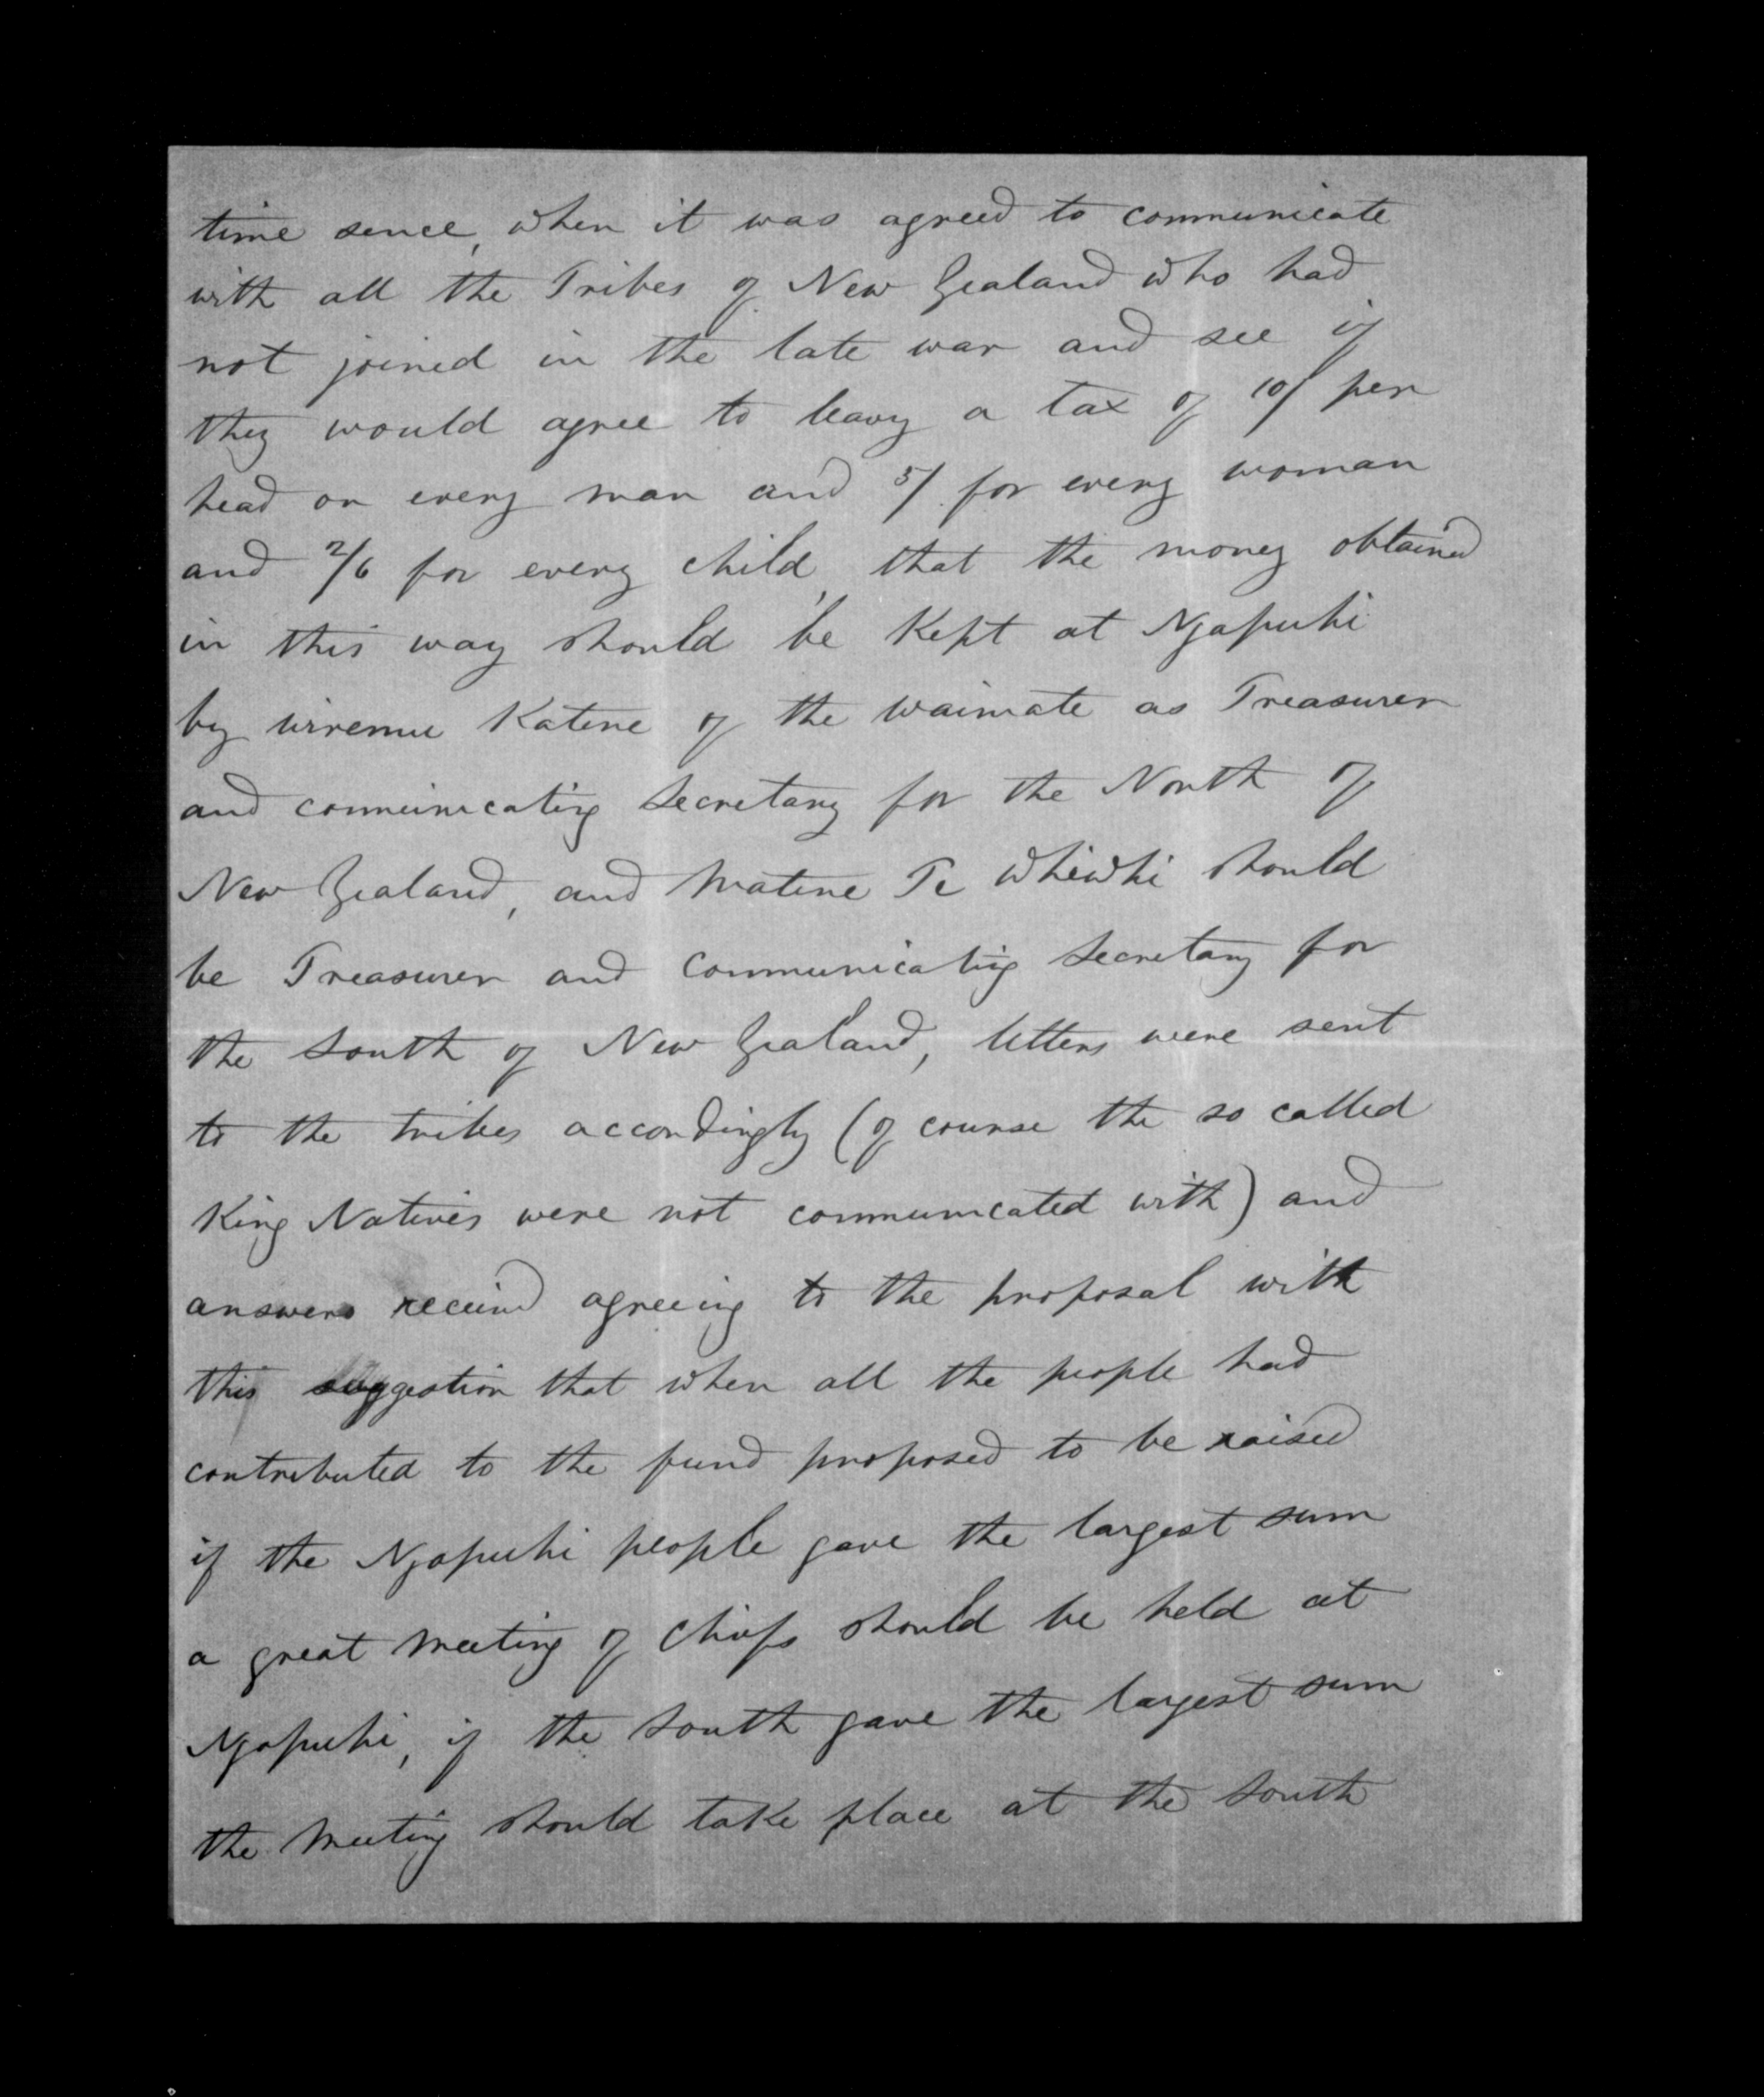 time sence, when it was agreed to communicate
with all the Tribes of New Zealand who had
not joined in the late war and see if
they would agree to leavy a tax of 10/ per
head on every man and 5/ for every woman
and 2/6 for every child, that the money obtained
in this way should be Kept at Ngapuhi
by Wiremu Katene of the Waimate as Treasurer
and communicating Secretary for the North of
New Zealand, and Matene Te Whiwhi should
be Treasurer and Communicating Secretary for
the South of New Zealand, letters were sent
to the tribes accordingly (of course the so called
King Natives were not communicated with) and
answers received agreeing to the proposal with
this suggestion that when all the people had
contributed to the fund proposed to be raised
if the Ngapuhi people gave the largest sum
a great Meeting of Chiefs should be held at
Ngapuhi, if the South gave the largest sum
the Meeting should take place at the South